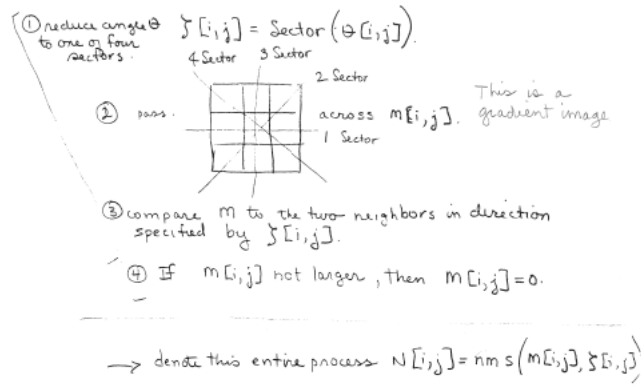 ① reduce angle θ ζ[i,j] = Sector(θ[i,j]).
to one of four
sectors.
4 Sector 3 Sector
2 Sector
② pass. across m[i,j]. This is a
gradient image
1 Sector
③ compare m to the two neighbors in direction
specified by ζ[i,j].
④ If m[i,j] not larger, then m[i,j]=0.
→ denote this entire process N[i,j]= nms(m[i,j], ζ[i,j])